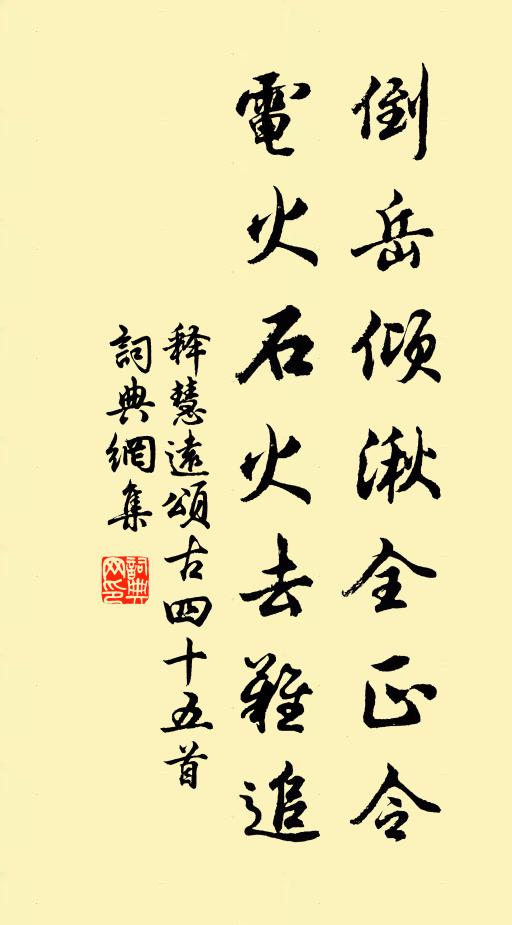 倒岳傾湫全正令
電火石火去難追
释慧遠頌古四十五首
詞典網集
詞典網印